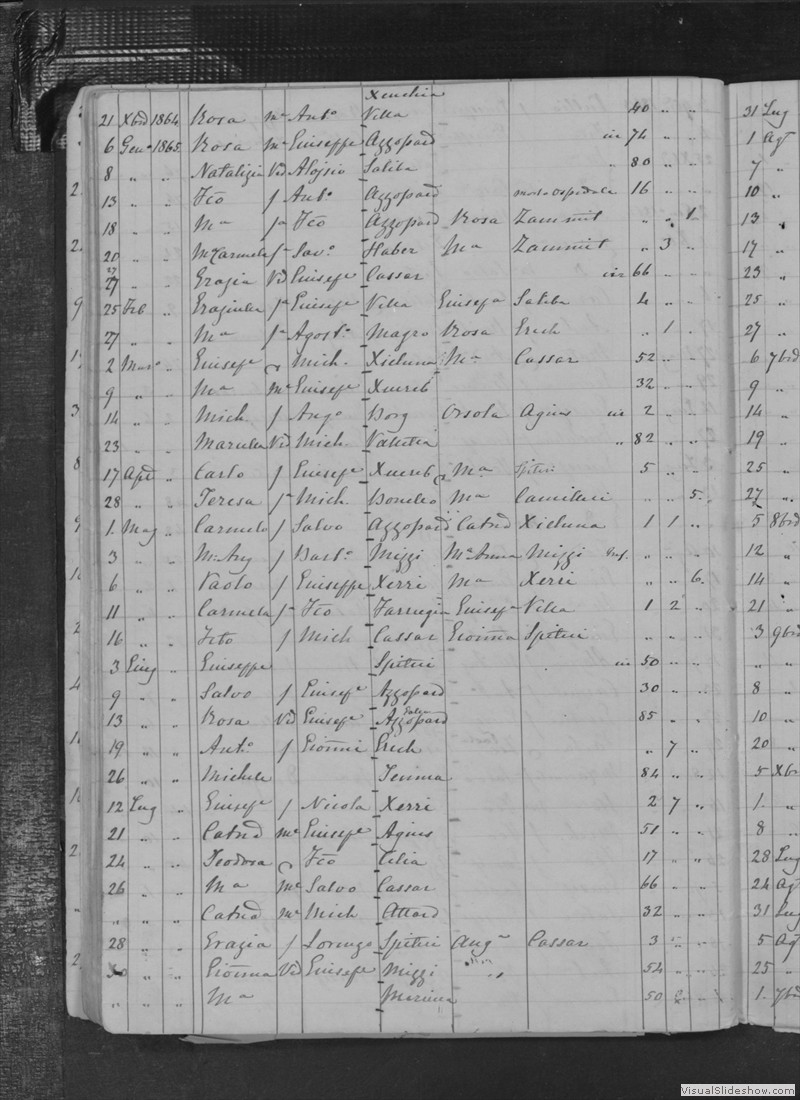 Xeuchia
21 Xbrё 1864 Rosa me Anto Vella 40 " " 31 Lug
6 Geno 1865 Rosa me Giuseppe Azzopard in 74 " " 1 Agt
8 " " Natalizia Vd Aloysio Saliba " 80 " " 7 "
13 " " Fco f Anto Azzopard morto Ospidale 16 " " 10 "
18 " " Ma fa Fco Azzopard Rosa Zammit " " 1 13 "
20 " " Ma Carmela fa Savo Haber Ma Zammit " 3 " 17 "
27 " " Grazia Vd Giusepe Cassar in 66 " " 23 "
25 Feb " fa Giusepe Vella Giusepa Saliba 4 " " 25 "
27 " " Ma fa Agosto Magro Rosa Grech " 1 " 27 "
2 Maro " Giusepe Mich. Xicluna Ma Cassar 52 " " 6 7brё
9 " " Ma me Giusepe Xuereb 32 " " 9 "
14 " " Mich f Ango Borg Orsola Agius in 2 " " 14 "
23 " " Vd Mich " 82 " " 19 "
17 Apl " Carlo f Giusepe Xuereb Ma Spiteri 5 " " 25 "
28 " " Teresa fa Mich Ma Camilleri " " 5 27 "
1 Mag " Carmelo f Salvo Azzopard Catnё Xicluna 1 1 " 5 8brё
3 " " Ma Ang f Barto Mizzi Ma Anna Mizzi Inf. " " " 12 "
6 " " Paolo f Giuseppe Xerri Ma Xerri " " 6 14 "
11 " " Carmela fa Fco Farrugia Giusepa Vella 1 2 " 21 "
16 " " f Mich Cassar Gionna Spiteri " " " 3 9brё
3 Giug " Giuseppe Spiteri in 50 " " " "
9 " " Salvo f Giusepe Azzopard 30 " " 8 "
13 " " Rosa Vd Giusepe Azzopard 85 " " 10 "
19 " " Anto f Gionni Grech " 7 " 20 "
26 " " Michele 84 " " 5 Xbrё
12 Lug " Giusepe f Nicola Xerri 2 7 " 1 "
21 " " Catnё me Giusepe Agius 51 " " 8 "
24 " " Teodora Fco Cilia 17 " " 28 Lug
26 " " Ma me Salvo Cassar 66 " " 24 Agt
" " " Catnё me Mich Attard 32 " " 31 Lug
28 " " Grazia f Lorenzo Spiteri Anga Cassar 3 " " 5 Agt
30 " " Gionna Vd Giusepe Mizzi " 54 " " 25 "
" " " Ma 50 " " 1 7brё
VisualSlideshow.com